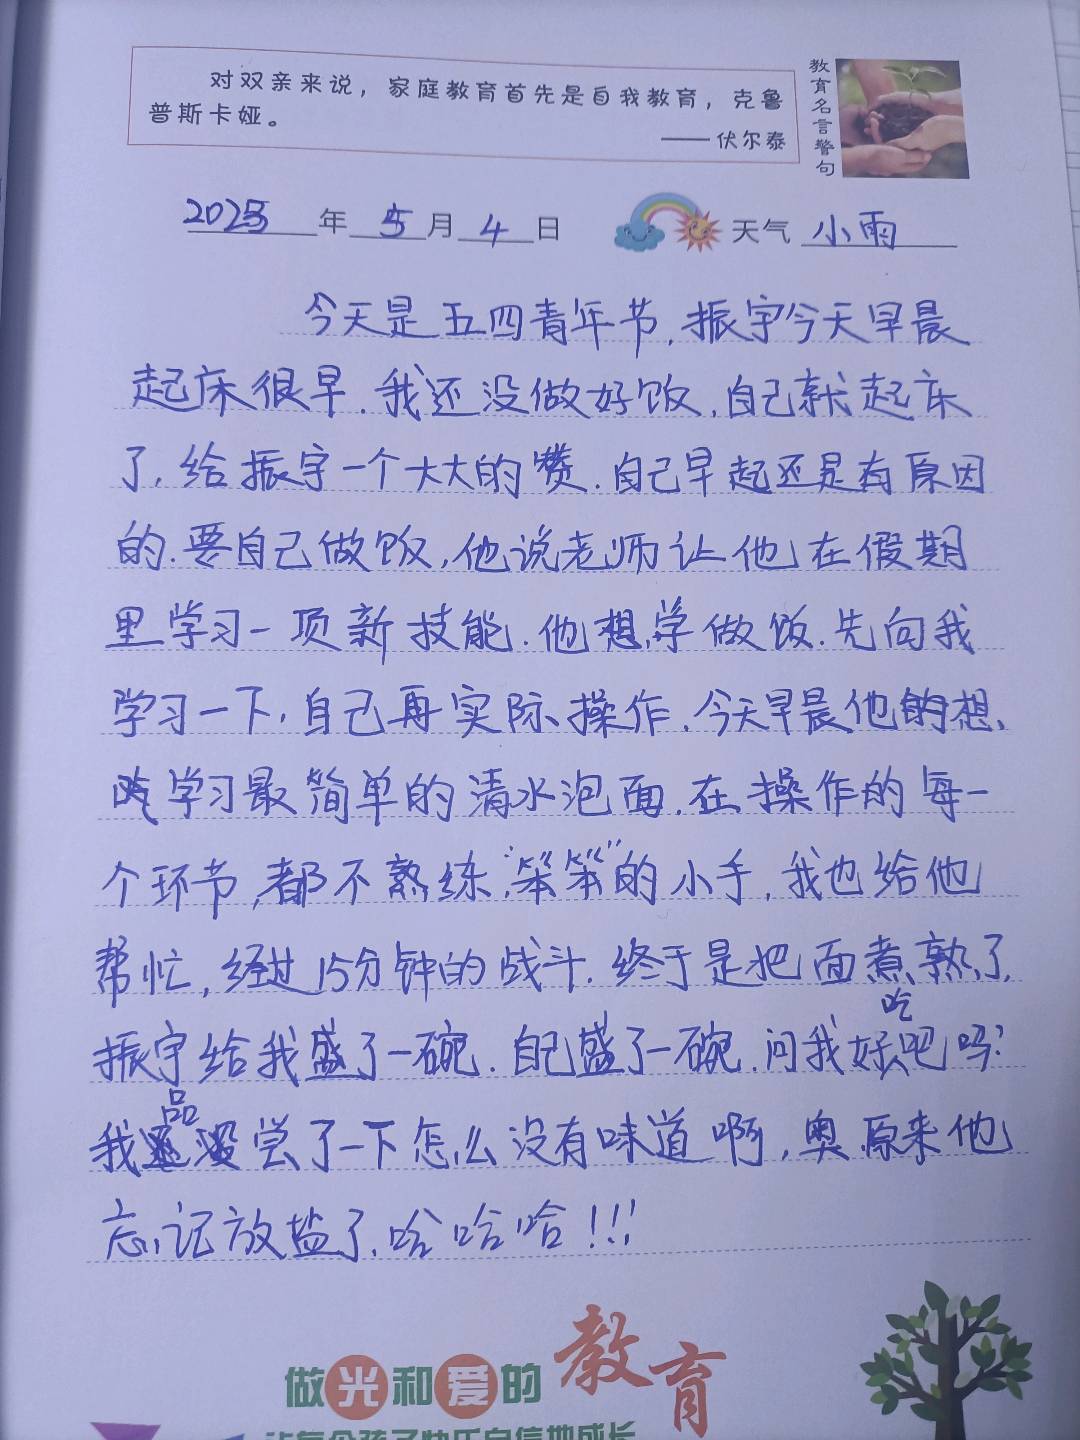 对双亲来说，家庭教育首先是自我教育，克鲁
普斯卡娅。
——伏尔泰
教育名言警句
2023年 5月 4日 天气 小雨
今天是五四青年节，振宇今天早晨
起床很早．我还没做好饭，自己就起床
了，给振宇一个大大的赞．自己早起还是有原因
的．要自己做饭，他说老师让他在假期
里学习一项新技能．他想学做饭．先向我
学习一下，自己再实际操作．今天早晨他的想
学习最简单的清水泡面．在操作的每一
个环节，都不熟练，"笨笨"的小手，我也给他
帮忙，经过15分钟的战斗．终于是把面煮熟了，
振宇给我盛了一碗．自己盛了一碗．问我好吃吧吗？
我品尝了一下怎么没有味道啊，奥，原来他
忘记放盐了，哈哈哈！！！
做光和爱的教育
让每个孩子快乐自信地成长